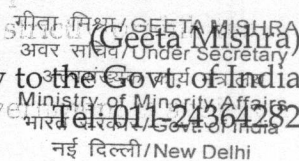 गीता मिश्रा/GEETA MISHRA
(Geeta Mishra)
अवर सचिव/Under Secretary
y to the Govt. of India
Ministry of Minority Affairs
Tel: 011-24364282
भारत सरकार/Govt. of India
नई दिल्ली/New Delhi